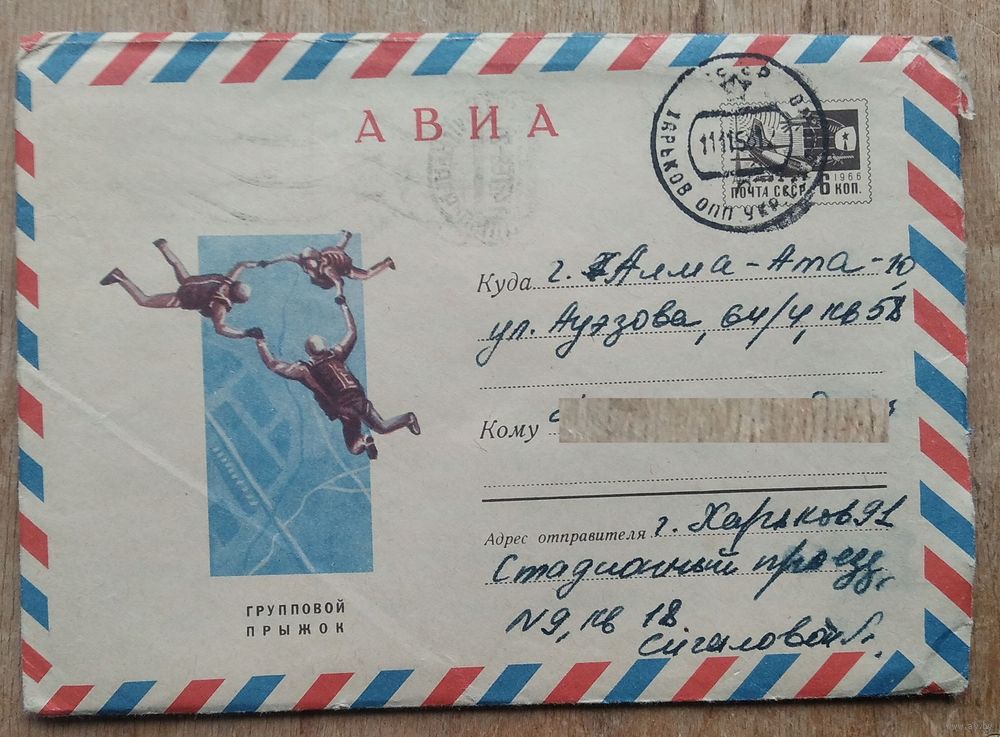 АВИА
СССР
ХАРЬКОВ ОПП УКР.
1966
ПОЧТА СССР 6 КОП.
Куда г. Алма-Ата-10
ул. Ауэзова, 64/4, кв 58
Кому
Адрес отправителя г. Харьков 91
Стадионный проезд,
N9, кв 18
Сигаловой
ГРУППОВОЙ
ПРЫЖОК
www.ay.by